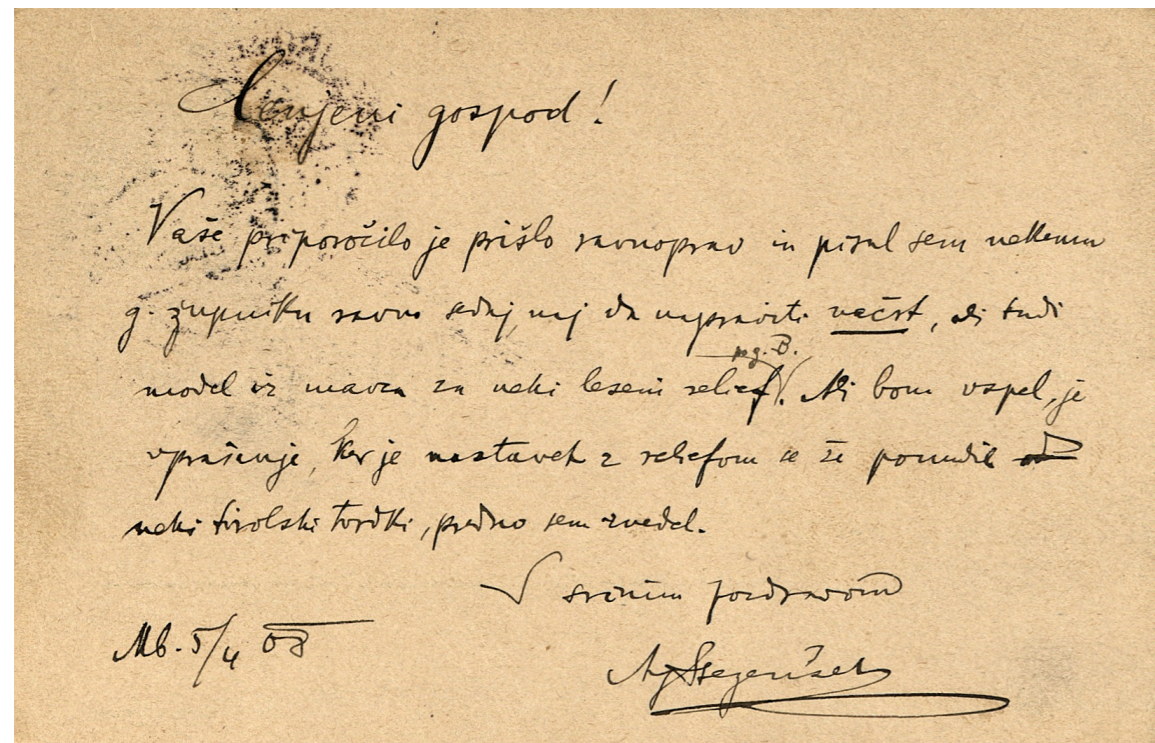 Cenjeni gospod!
Vaše priporočilo je prišlo ravnoprav in pisal sem nekemu
g. župniku ravno sedaj, naj da napraviti načrt, ali tudi
pg. B.
model iz mavca za neki leseni relief. Ali bom uspel, je
vprašanje, ker je nastavek z reliefom se že ponudil
neki tirolski tvrdki, predno sem zvedel.
S srčnim pozdravom
Mb. 5/4 08